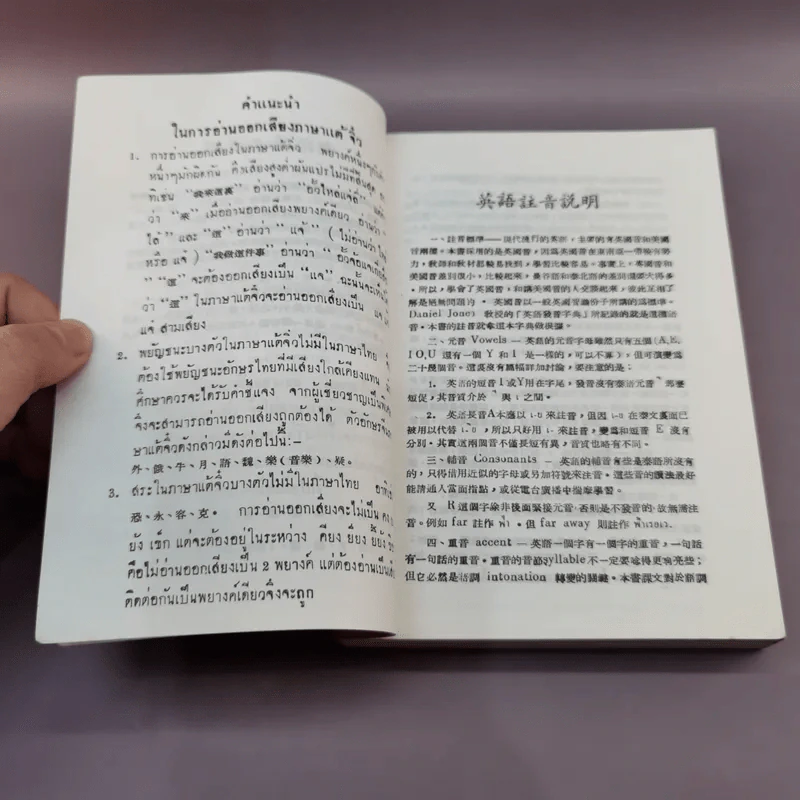 คำแนะนำ
ในการอ่านออกเสียงภาษาแต้จิ๋ว
1. การอ่านออกเสียงในภาษาแต้จิ๋ว พยางค์หนึ่งๆ
หน้าๆมักผิดกัน คือเสียงสูงต่ำผันแปรไม่มีที่สิ้นสุด
ที่เช่น "我來這裏" อ่านว่า
ว่า "來" เมื่ออ่านออกเสียงพยางค์เดียว อ่านว่า
ไล้" และ "這" อ่านว่า "แจ้" (ไม่อ่านว่า
หรือ แจ๋) "我做這件事" อ่านว่า
"這" จะต้องออกเสียงเป็น "แจ" ฉะนั้นจะเห็น
ว่า "這" ในภาษาแต้จิ๋วจะอ่านออกเสียงเป็น แจ
แจ๋ สามเสียง
2. พยัญชนะบางตัวในภาษาแต้จิ๋วไม่มีในภาษาไทย จึง
ต้องใช้พยัญชนะอักษรไทยที่มีเสียงใกล้เคียงแทน
ศึกษาควรจะได้รับคำชี้แจง จากผู้เชี่ยวชาญเป็นพิเศษ
จึงจะสามารถอ่านออกเสียงถูกต้องได้ ตัวอักษรจีน
ษาแต้จิ๋วดังกล่าวมีดังต่อไปนี้:—
外、餓、牛、月、語、魏、樂(音樂)、疑。
3. สระในภาษาแต้จิ๋วบางตัวไม่มีในภาษาไทย อาทิเช่น
恐、永、容、克。 การอ่านออกเสียงจะไม่เป็น คง
ยัง เข็ก แต่จะต้องอยู่ในระหว่าง คียง ยี่ยง ยี้ยัง
คือไม่อ่านออกเสียงเป็น 2 พยางค์ แต่ต้องอ่านเป็น
ติดต่อกันเป็นพยางค์เดียวจึงจะถูก
英語註音說明
一、註音標準——現代流行的英語，主要的有英國音和美國
音兩種。本書採用的是英國音，因為英國音在東南亞一帶較有勢
力，教師和教材容易找到，學習比較容易。事實上，英國音和
美國音差別很小，比較起來，曼谷語和泰北語的差別還要大得多
。所以，學會了英國音，和講美國音的人交談起來，彼此互相了
解是絕無問題的。英國音以一般英國知識份子所講的為標準。
Daniel Jone) 教授的「英語發音字典」所記錄的就是這種語
音。本書的註音就拿這本字典做根據。
二、元音 Vowels — 英語的元音字母雖然只有五個 (A,E,
I,O,U 還有一個 Y 和 I 是一樣的，可以不算)，但可演變為
二十幾個音。這裏沒有篇幅詳加討論，要注意的是：
1. 英語的短音 I 或Y用在字尾，發音沒有泰語元音 那麼
短促，其音質介於 與 之間。
2. 英語長音A本應以 เ-อ 來註音，但因 เ-อ 在泰文裏面已
被用以代替 ，所以只好用 เ- 來註音，變為和短音 E 沒有
分別。其實這兩個音不僅長短有異，音質也略有不同。
三、輔音 Consonants — 英語的輔音有些是泰語所沒有
的，只得借用近似的字母或另加符號來注音。這些音的讀法最好
能請通人當面指點，或從電台廣播中揣摩學習。
又 R 這個字除非後面緊接元音，否則是不發音的，故無需注
音。例如 far 註作 ฟา。但 far away 則註作 ฟาเรอเว。
四、重音 accent — 英語一個字有一個字的重音，一句話
有一句話的重音。重音的音節syllable不一定要唸得更响亮些；
但它必然是語調 intonation 轉變的關鍵。本書課文對於語調